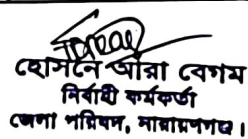 হোসনে আরা বেগম
নির্বাহী কর্মকর্তা
জেলা পরিষদ, নারায়নগঞ্জ।